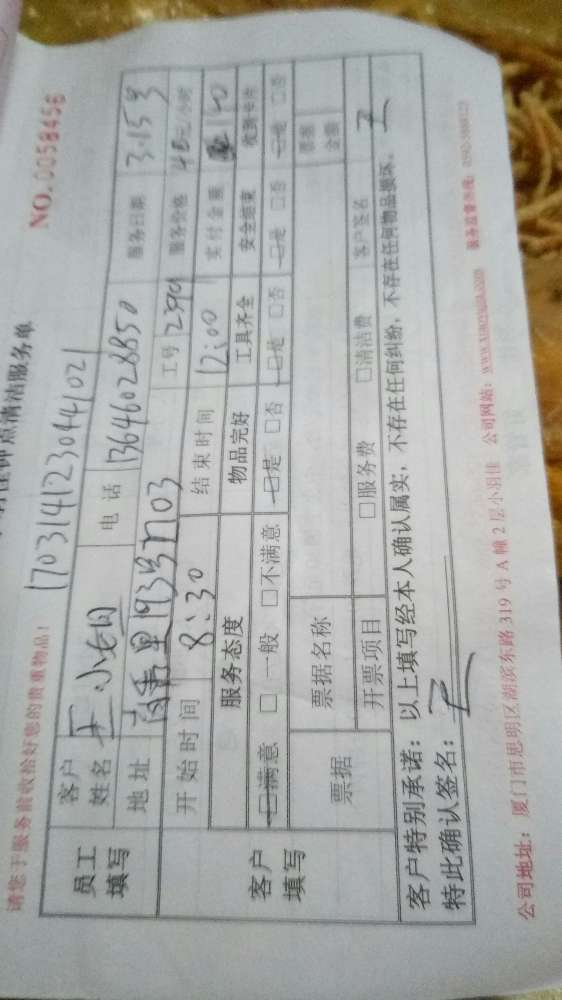 钟点清洁服务单
NO.0058456
请您于服务前收拾好您的贵重物品！
170314123044021
员工填写
客户姓名 王小姐 电话 13646028850 服务日期 3.15号
地址 193号1703 工号 2590 服务价格 40元/小时
开始时间 8:30 结束时间 12:00 实付金额 140
客户填写
服务态度 物品完好 工具齐全 安全结束 收到卡片
□满意 □一般 □不满意 □是 □否 □是 □否 □是 □否 □是 □否
票据 票据名称 票据金额
开票项目 □服务费 □清洁费 客户签名 王
客户特别承诺：以上填写经本人确认属实，不存在任何纠纷，不存在任何物品损坏。
特此确认签名：王
公司地址：厦门市思明区湖滨东路 319 号 A 幢 2 层小羽佳 公司网站：www.xiaoyujia.com 服务监督热线：